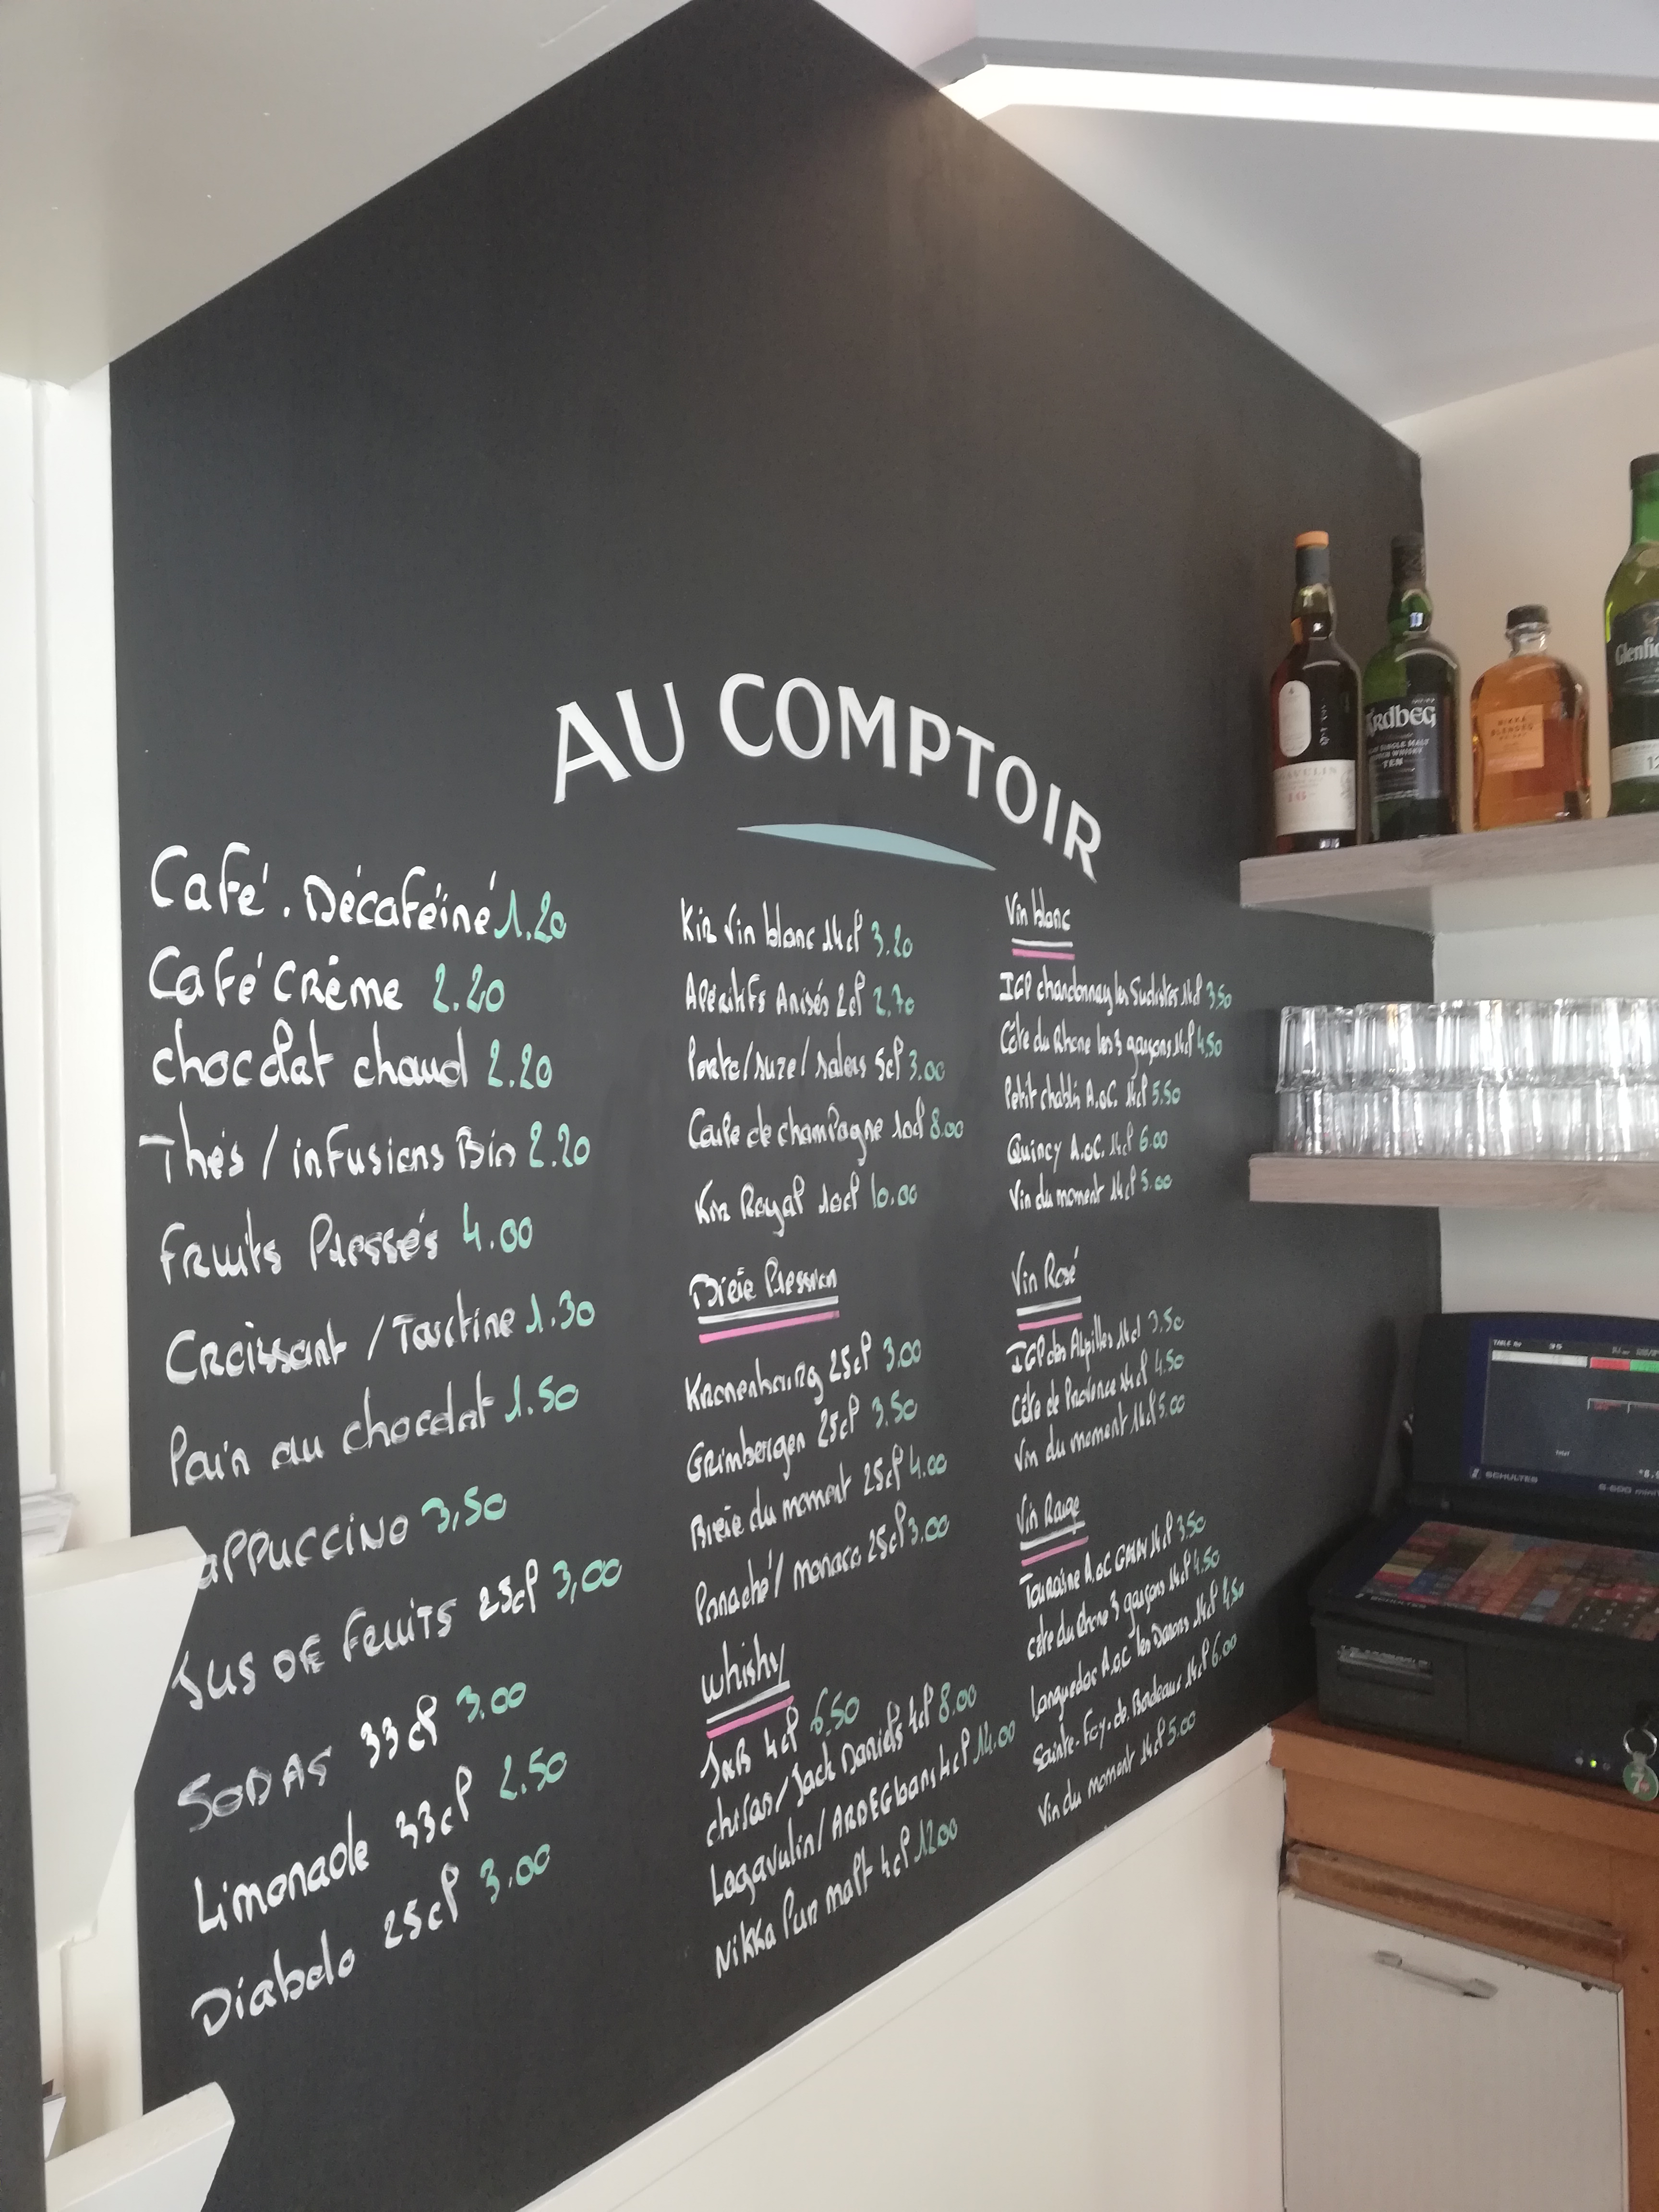 AU COMPTOIR
Café . Décaféiné 1.20
Café Crème 2.20
chocolat chaud 2.20
Thés / infusions Bio 2.20
Fruits Pressés 4.00
Croissant / Tartine 1.30
Pain au chocolat 1.50
APPUCCINO 3,50
JUS DE FRUITS 25cl 3,00
SODAS 33cl 3.00
Limonade 33cl 2.50
Diabolo 25cl 3.00
Kir Vin blanc 14cl 3.20
Apéritifs Anisés 2cl 2.70
Porto / suze / salers 5cl 3.00
Coupe de champagne 10cl 8.00
Kir Royal 10cl 10.00
Bière Pression
Kronenbourg 25cl 3.00
Grimbergen 25cl 3.50
Bière du moment 25cl 4.00
Panaché / monaco 25cl 3.00
whisky
J&B 4cl 6,50
chivas / Jack Daniels 4cl 8.00
Lagavulin / ARDEG 4cl 14.00
Nikka Pur malt 4cl 12.00
Vin blanc
IGP chardonnay les Sudistes 14cl 3,50
Côte du Rhone les 3 garçons 14cl 4,50
Petit chablis A.O.C. 14cl 5.50
Quincy A.O.C. 14cl 6.00
Vin du moment 14cl 5.00
Vin Rosé
IGP des Alpilles 14cl 3.50
Côte de Provence 14cl 4.50
Vin du moment 14cl 5.00
Vin Rouge
Touraine A.O.C 14cl 3.50
côte du Rhone 3 garçons 14cl 4.50
Languedoc A.O.C les Darons 14cl 4,50
Sainte-Foy-de-Bordeaux 14cl 6.00
Vin du moment 14cl 5.00
Ardbeg
SINGLE MALT
TEN
NIKKA
BLENDED
Glenfid
12
16
TABLE Nr 35
SCHULTES
S-600
SCHULTES
7